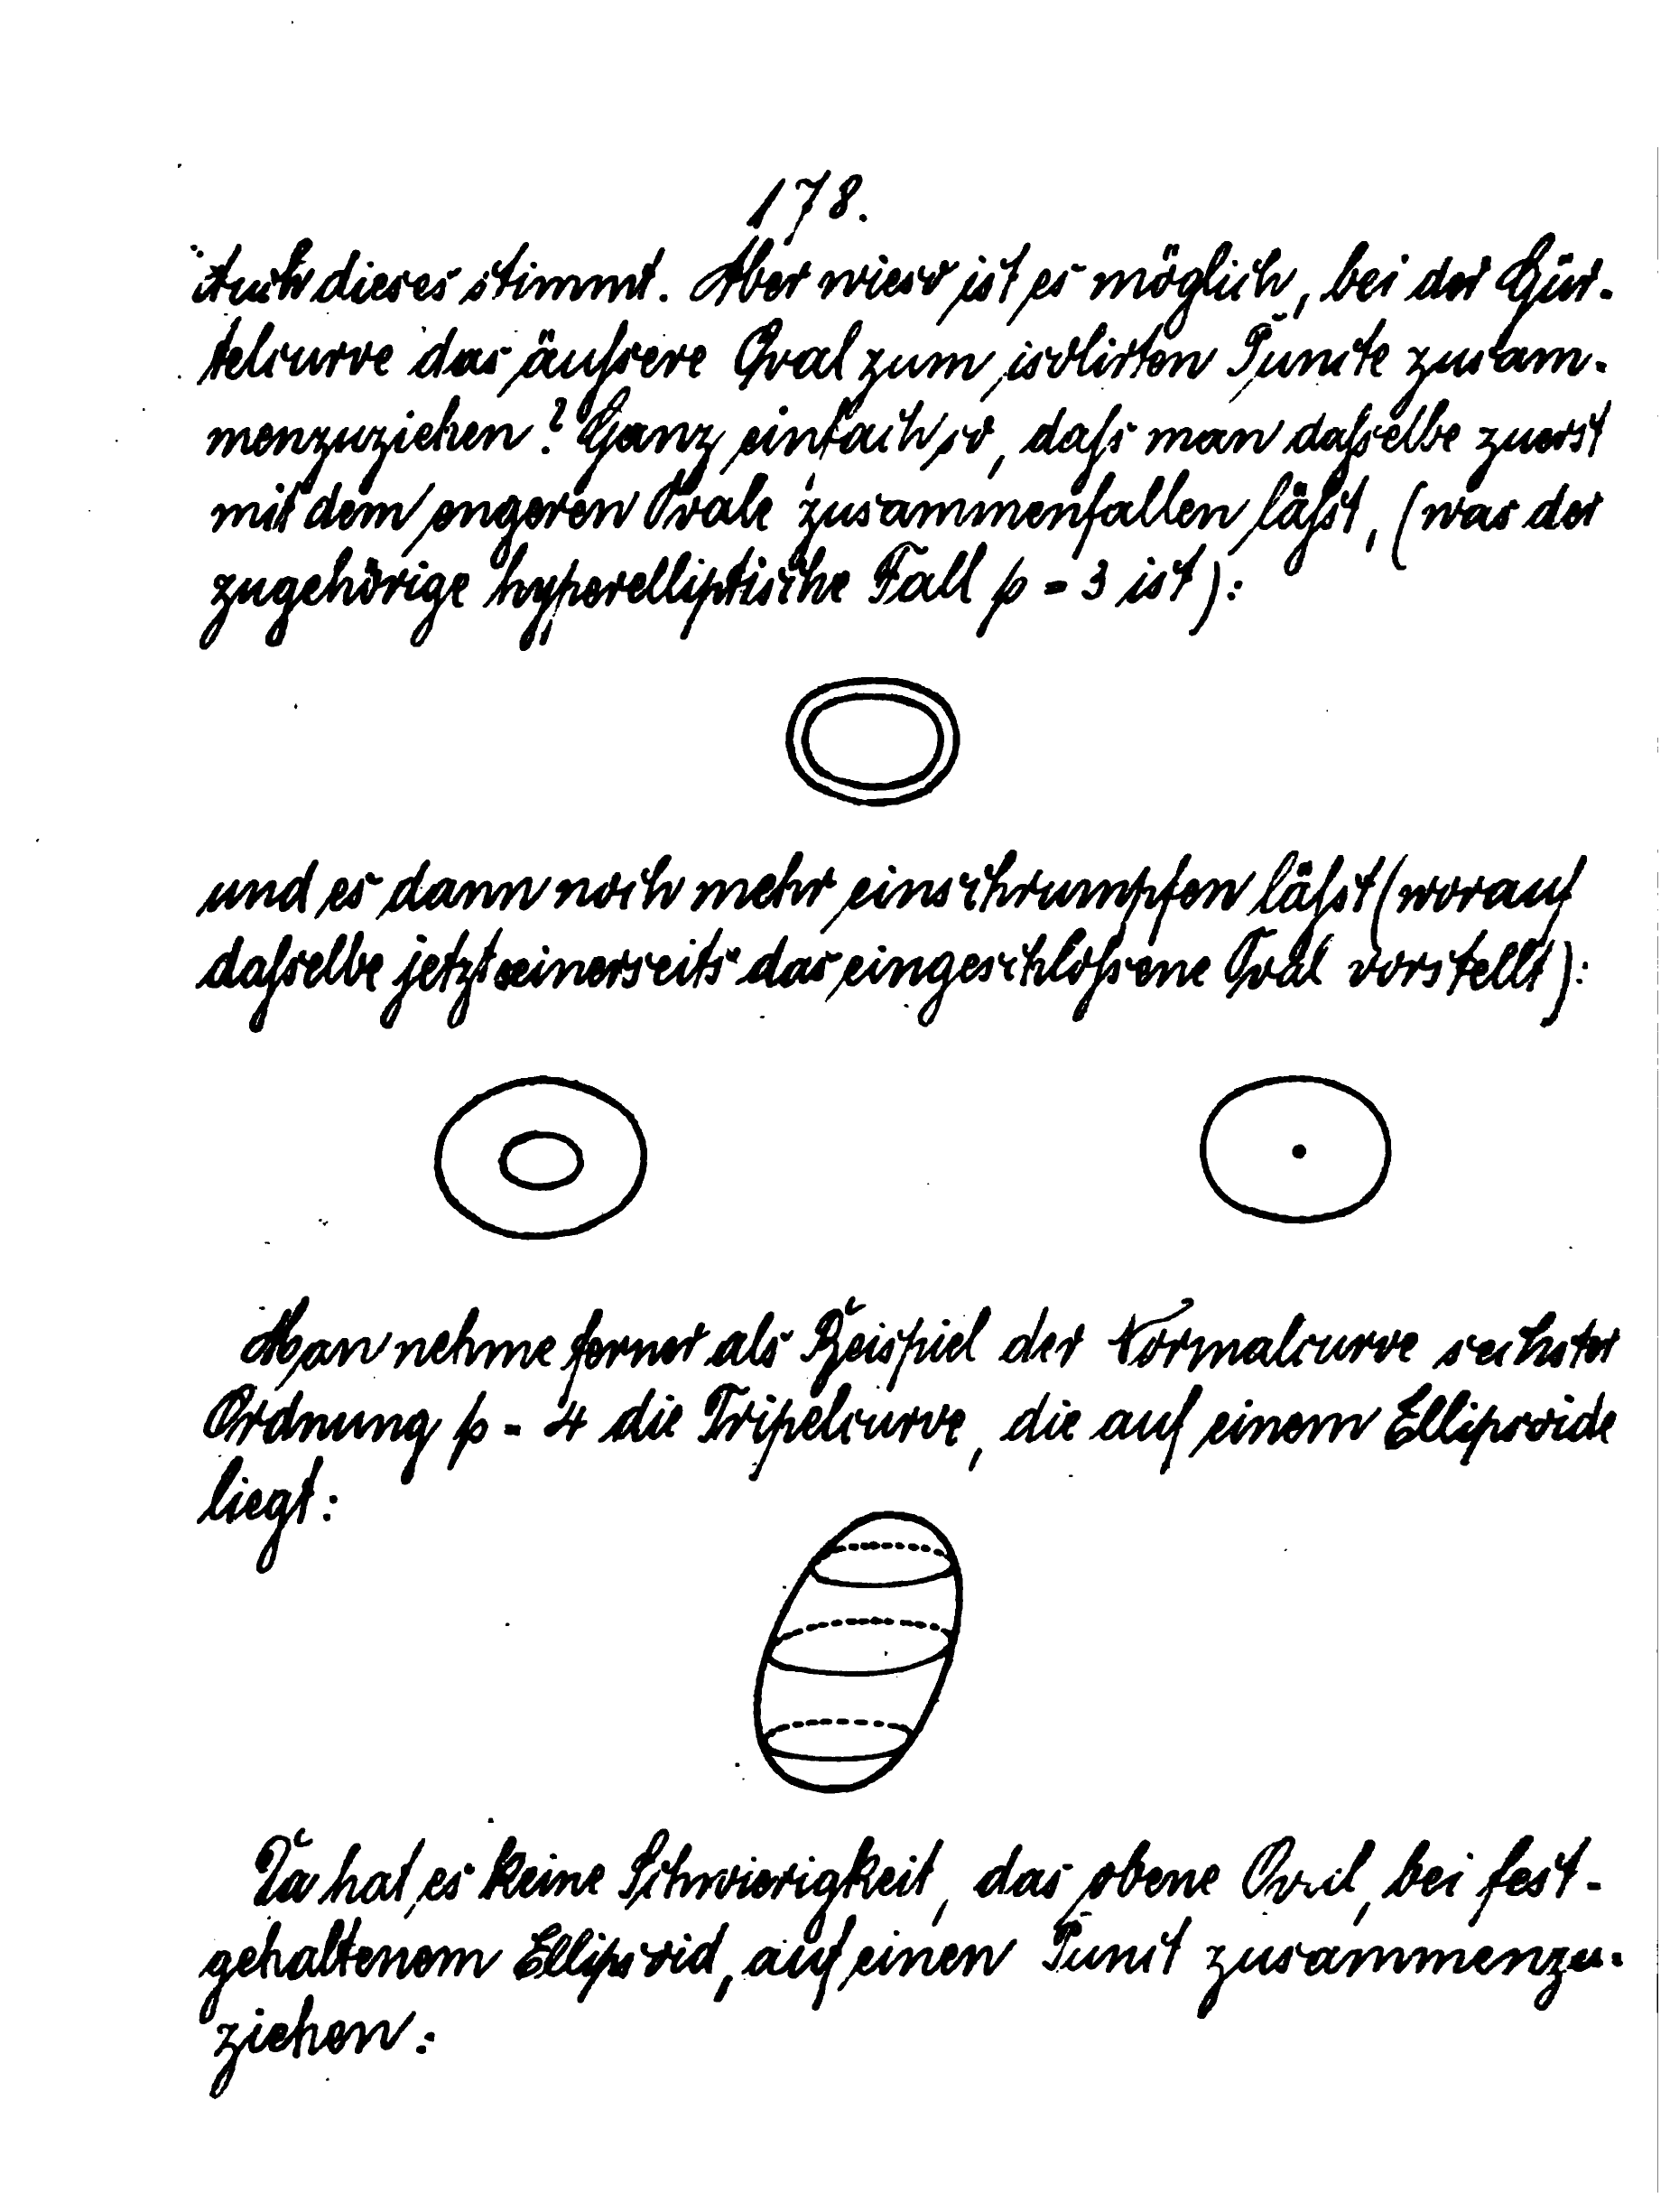 178.
Auch dieses stimmt. Aber wieso ist es möglich, bei der Gür-
telcurve das äußere Oval zum isolirten Puncte zusam-
menzuziehen? Ganz einfach so, daß man daßelbe zuerst
mit dem engeren Ovale zusammenfallen läßt, (was der
zugehörige hyperelliptische Fall p = 3 ist):
und es dann noch mehr einschrumpfen läßt (worauf
daßelbe jetzt seinerseits das eingeschloßene Oval vorstellt):
Man nehme ferner als Beispiel der Normalcurve sechster
Ordnung p = 4 die Tripelcurve, die auf einem Ellipsoide
liegt:
Da hat es keine Schwierigkeit, das obene Oval, bei fest-
gehaltenem Ellipsoid, auf einen Punct zusammenzu-
ziehen: